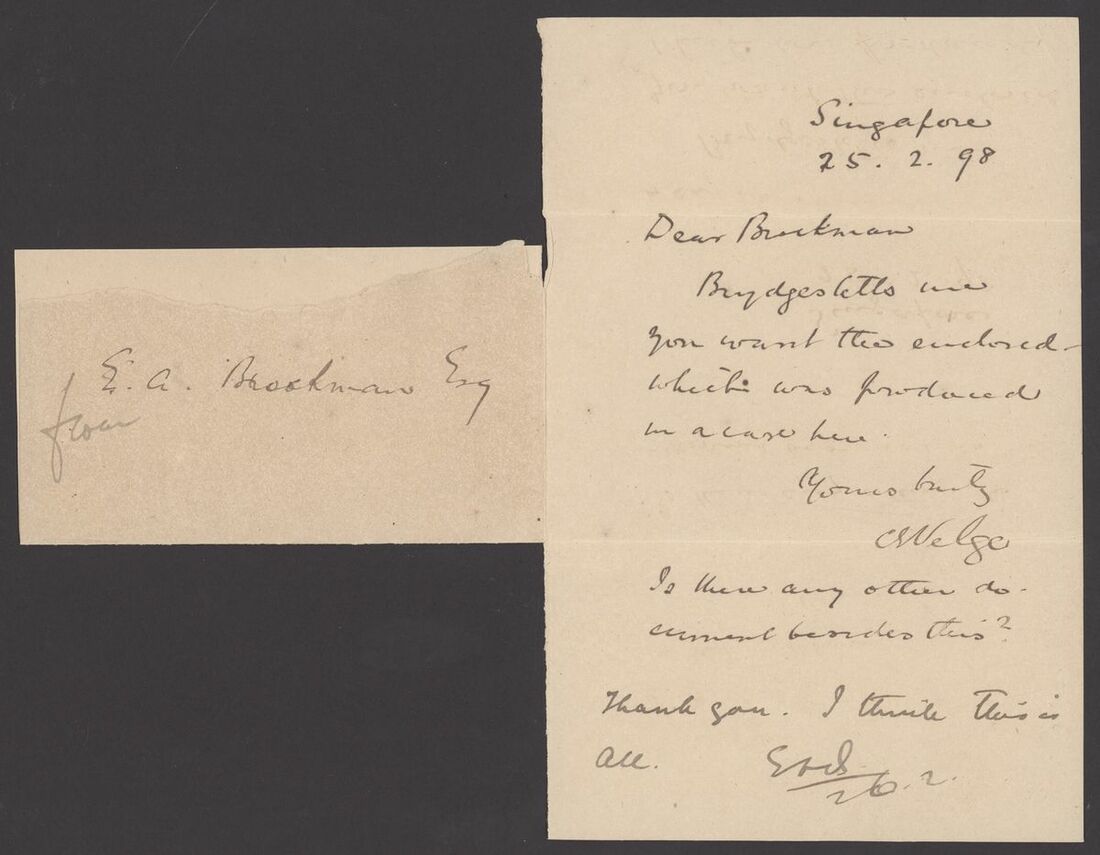 E. A. Brockman Esq
from
Singapore
25. 2. 98
Dear Brockman
Brydges tells me
you want the enclosed
which was produced
in a case here.
Yours truly
Velge
Is there any other do-
cument besides this?
Thank you. I think this is
all.
26.2.